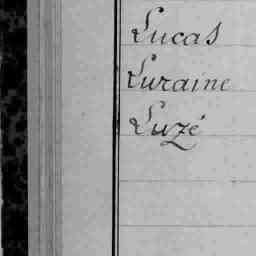 Lucas
Luraine
Luzé